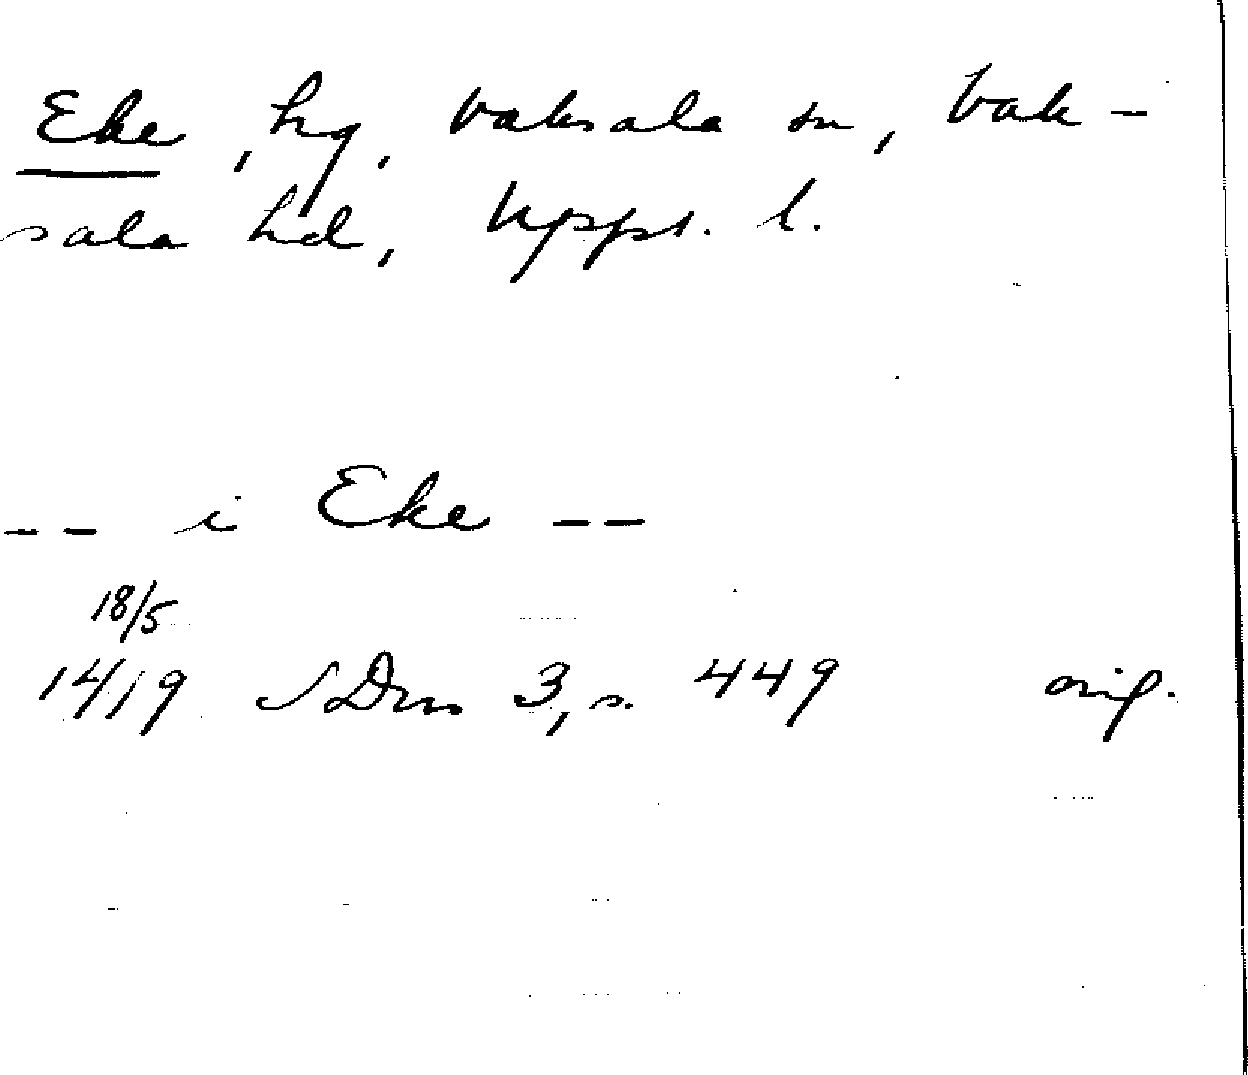 Eke, hg, Vaksala sn, Vak-
sala hd, Upps. l.
-- i Eke --
18/5
1419 SDns 3, s. 449 orig.